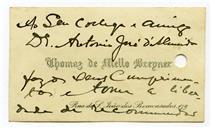 Ao Seu Collega e Amigo
Dr. Antonio José d'Almeida
Thomaz de Mello Breyner
faz os seus cumprimen
tos e toma a liber
dade de recommendar